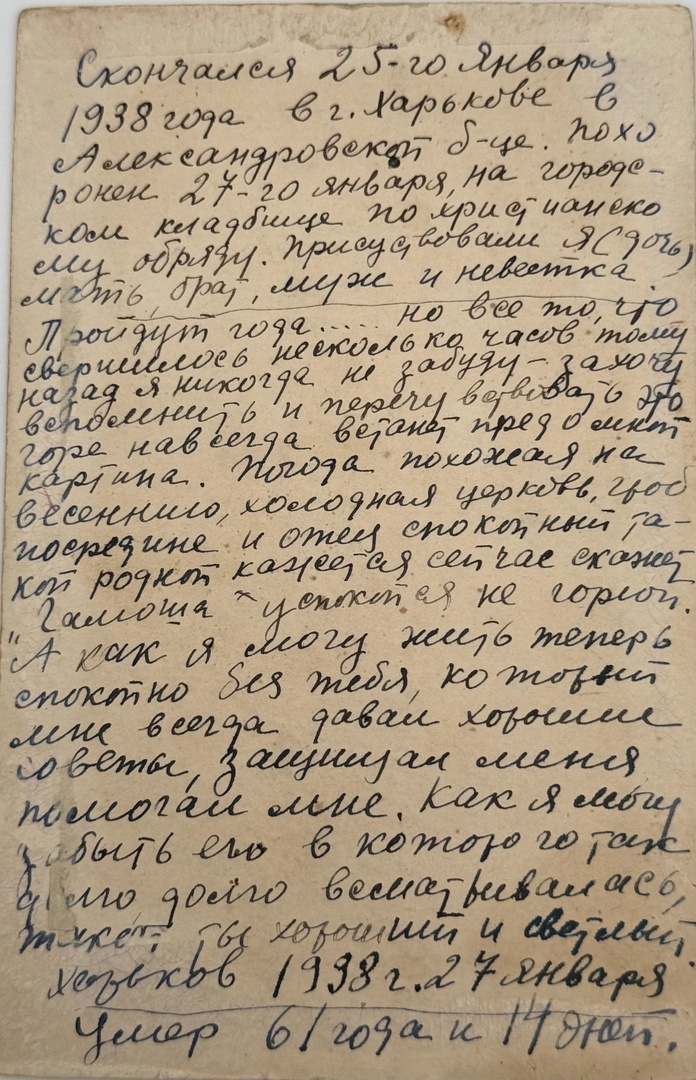 Скончался 25-го Января
1938 года в г. Харькове в
Александровской б-це. Похо
ронен 27-го января, на городс-
ком кладбище по христианско
му обряду. Присуствовали я (дочь)
мать, брат, муж и невестка.
Пройдут года..... но все то, что
свершилось несколько часов тому
назад я никогда не забуду - захочу
вспомнить и перечувствовать это
горе навсегда встанет предо мной
картина. Погода похожая на
весеннию, холодная церковь, гроб
посредине и отец спокойный та-
кой родной кажется сейчас скажет
"Тамоша" успокойся не горюй.
А как я могу жить теперь
спокойно без тебя, который
мне всегда давал хорошие
советы, защищал меня
помогал мне. Как я могу
забыть его в которого так
долго долго всматривалась,
такой ты хороший и светлый.
Харьков 1938 г. 27 января
Умер 61 года и 14 дней.